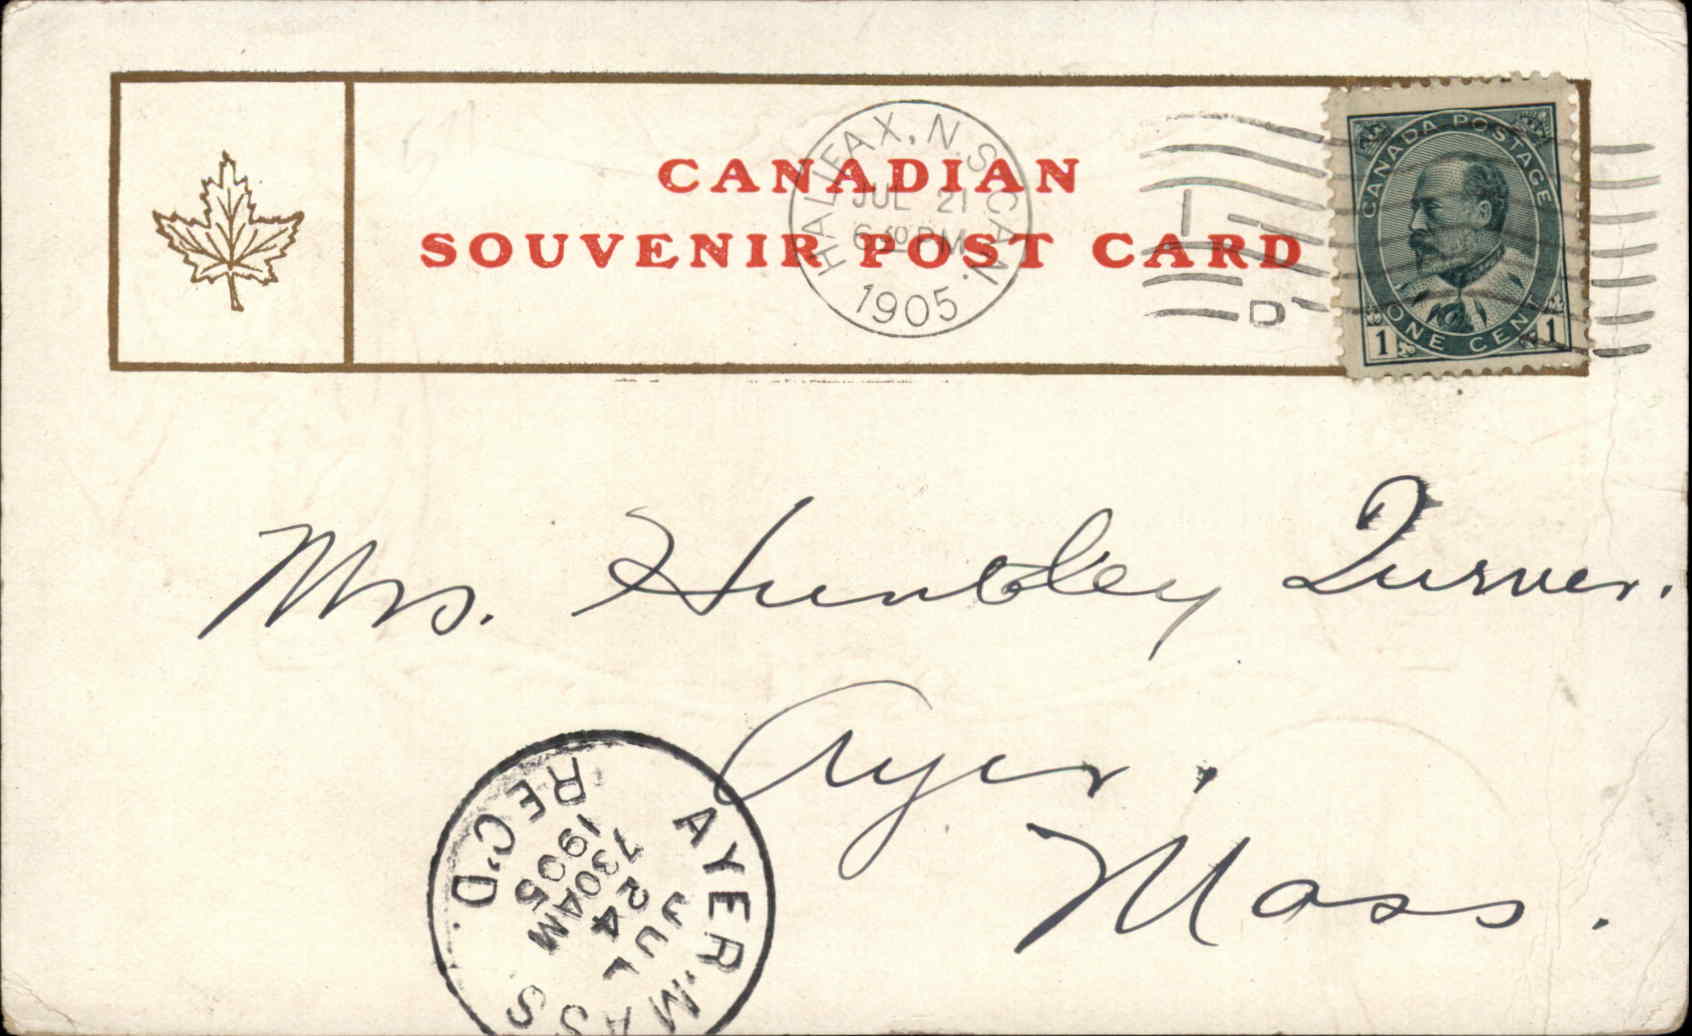 CANADIAN
SOUVENIR POST CARD
HALIFAX, N.S. CAN.
JUL 21
6 30 PM
1905
D
CANADA POSTAGE
ONE CENT
1 1
Mrs. Huntley Turner.
Ayer.
Mass.
AYER. MASS
JUL
24
730AM
1905
REC'D.